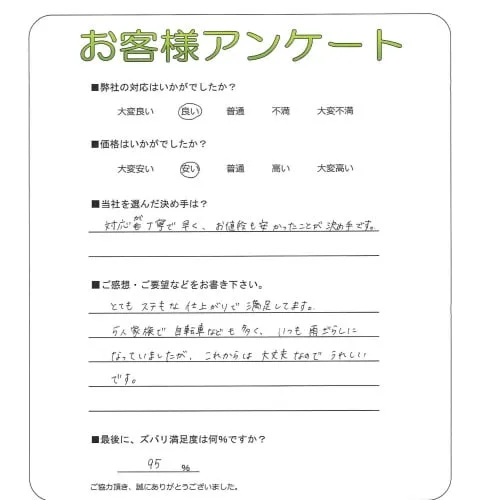 お客様アンケート
■弊社の対応はいかがでしたか？
大変良い 良い 普通 不満 大変不満
■価格はいかがでしたか？
大変安い 安い 普通 高い 大変高い
■当社を選んだ決め手は？
対応が丁寧で早く、お値段も安かったことが決め手です。
■ご感想・ご要望などをお書き下さい。
とてもステキな仕上がりで満足してます。
5人家族で自転車なども多く、いつも雨ざらしに
なっていましたが、これからは大丈夫なのでうれしい
です。
■最後に、ズバリ満足度は何%ですか？
95 %
ご協力頂き、誠にありがとうございました。